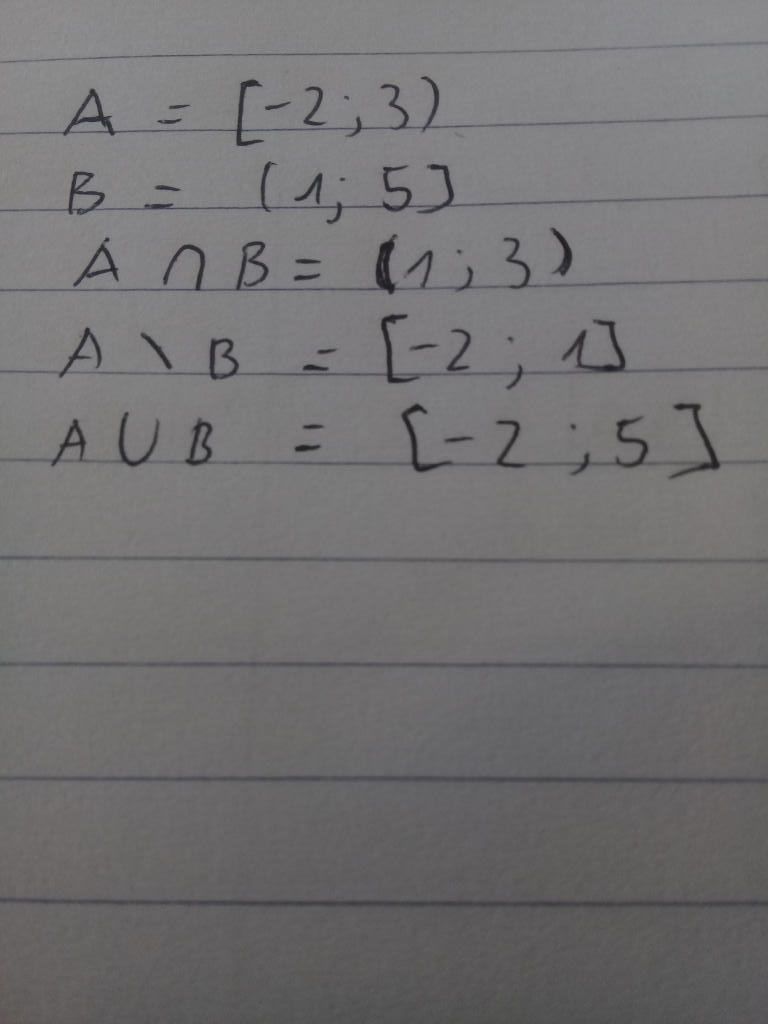 A = [-2 ; 3)
B = (1 ; 5]
A ∩ B = (1 ; 3)
A \ B = [-2 ; 1]
A ∪ B = [-2 ; 5]